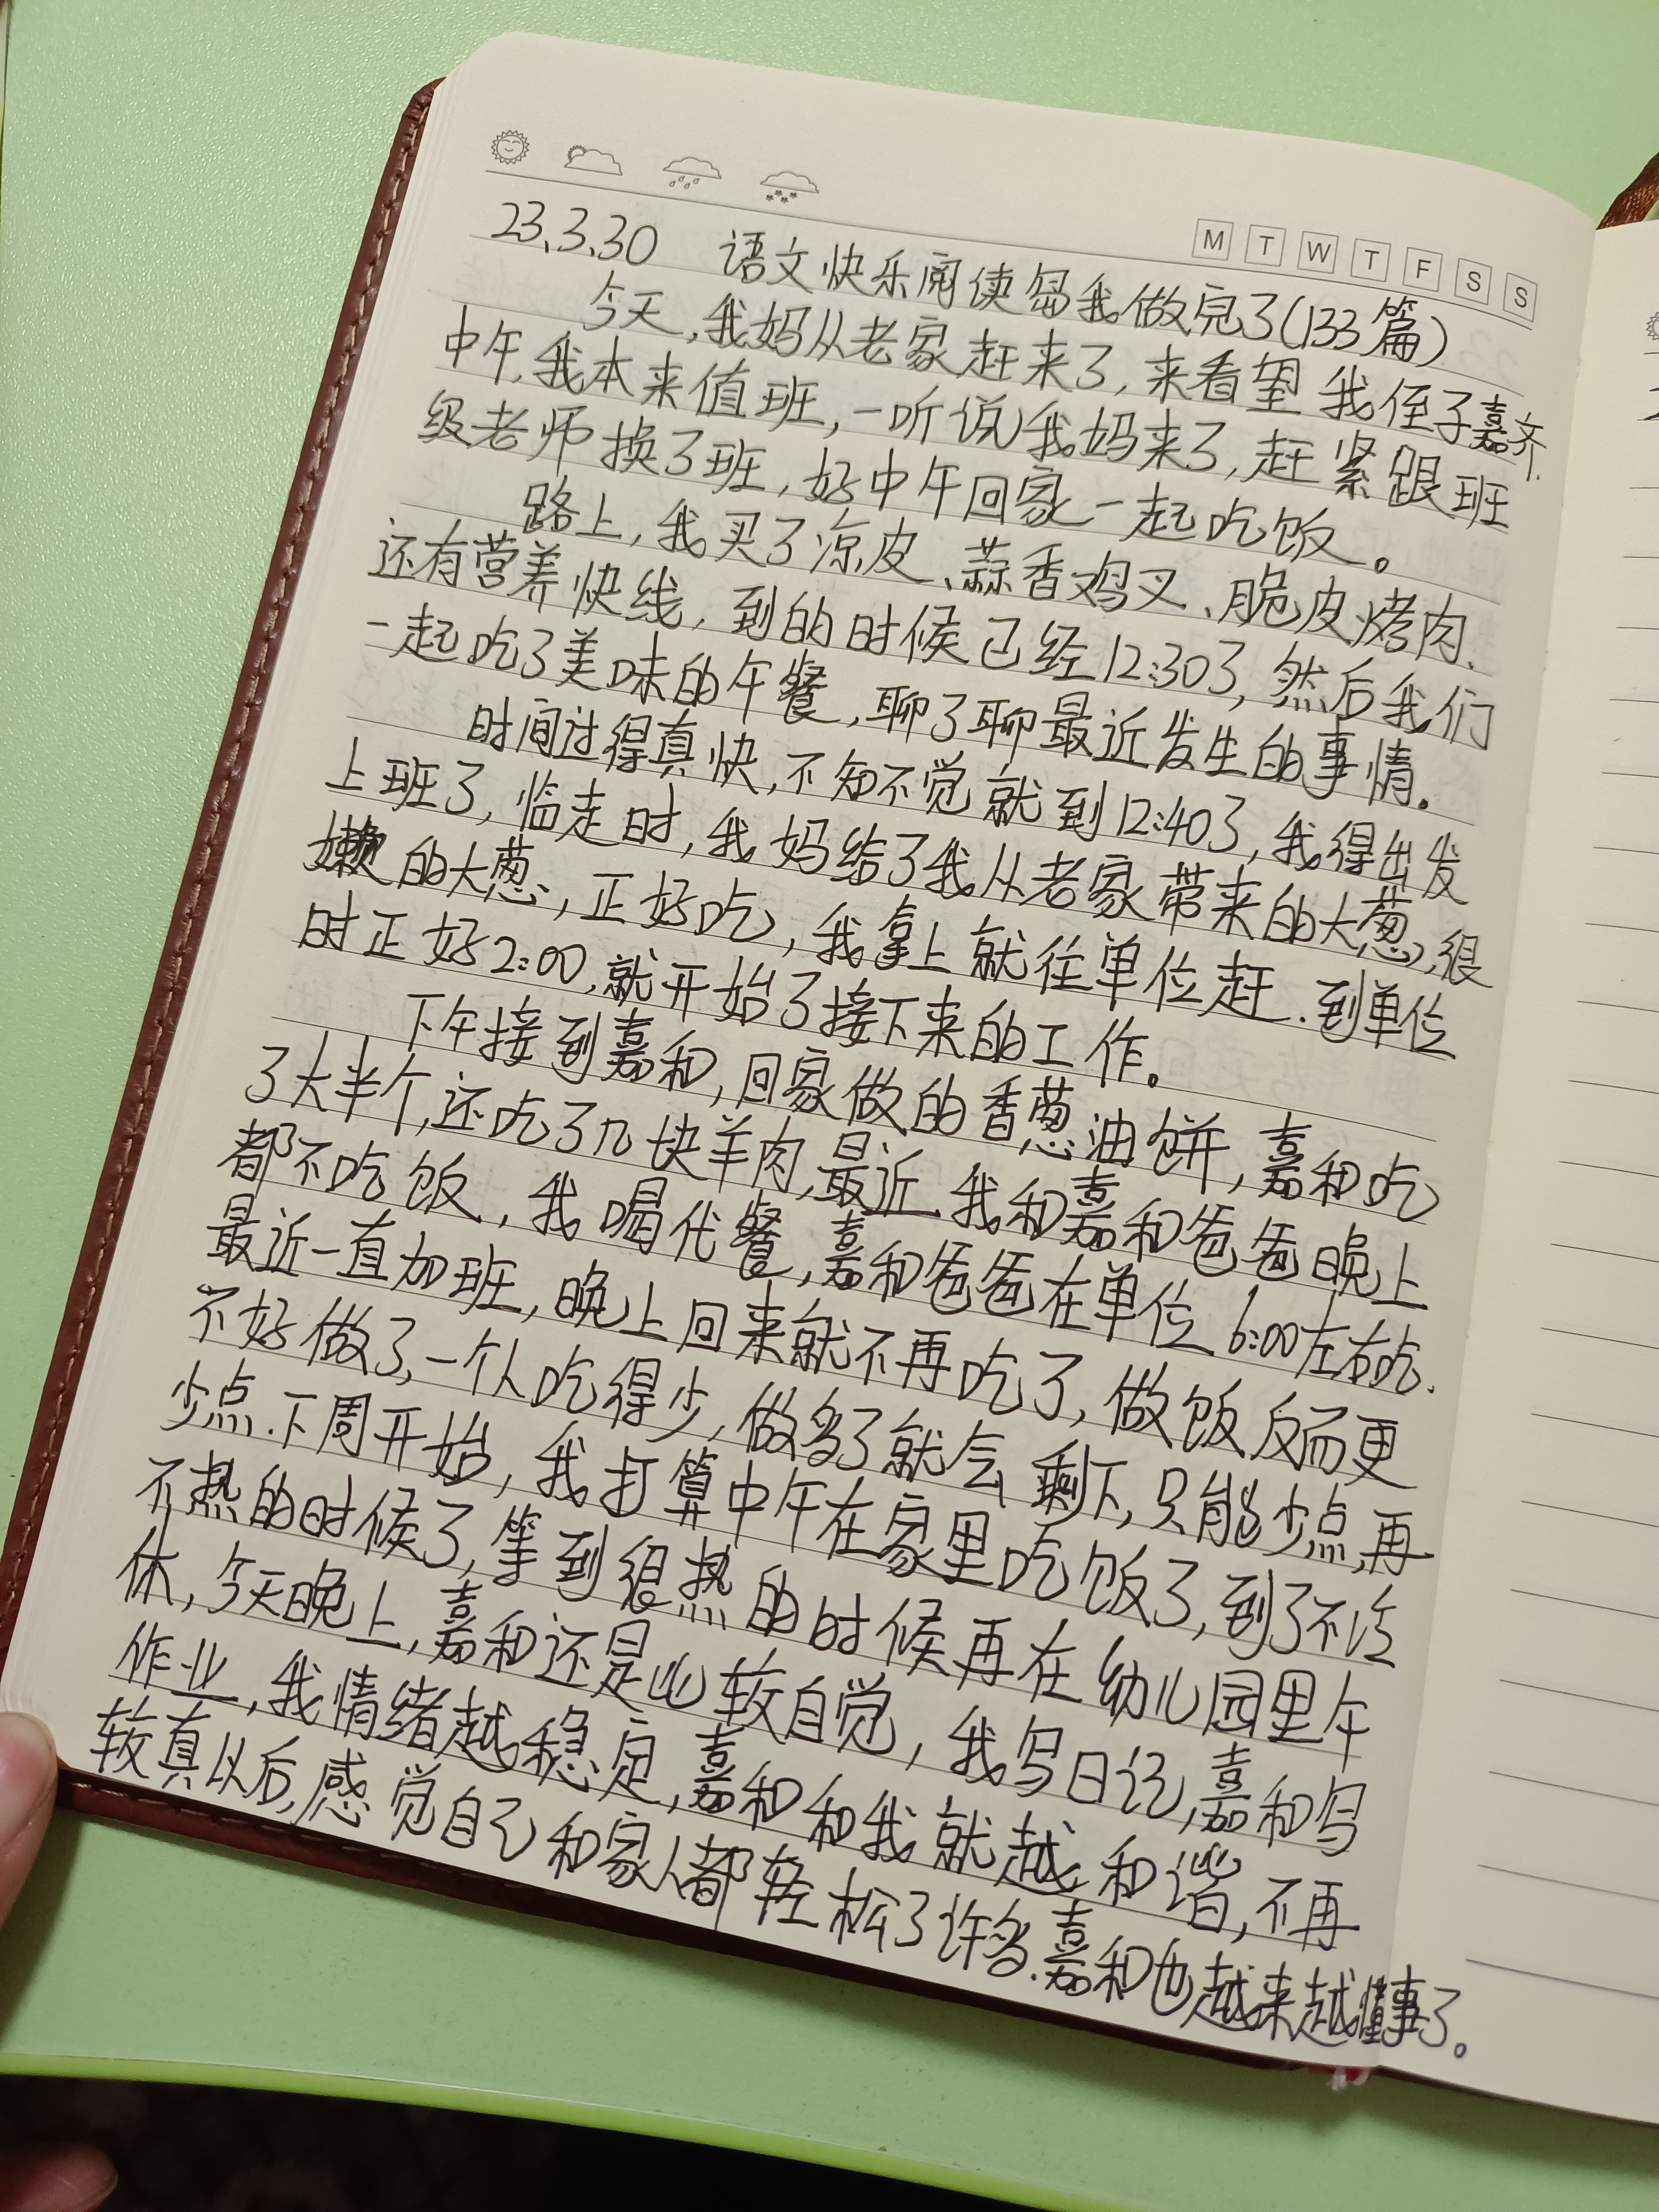 M T W T F S S
23、3、30 语文快乐阅读岛我做完了(133篇)
今天,我妈从老家赶来了,来看望我侄子嘉齐.
中午,我本来值班,一听说我妈来了,赶紧跟班
级老师换了班,好中午回家一起吃饭。
路上,我买了凉皮、蒜香鸡叉、脆皮烤肉、
还有营养快线,到的时候已经12:30了,然后我们
一起吃了美味的午餐,聊了聊最近发生的事情。
时间过得真快,不知不觉就到12:40了,我得出发
上班了,临走时,我妈给了我从老家带来的大葱,很
嫩的大葱,正好吃,我拿上就往单位赶.到单位
时正好2:00,就开始了接下来的工作。
下午接到嘉和,回家做的香葱油饼,嘉和吃
了大半个,还吃了几块羊肉,最近、我和嘉和爸爸晚上
都不吃饭,我喝代餐,嘉和爸爸在单位6:00左右吃.
最近一直加班,晚上回来就不再吃了,做饭反而更
不好做了,一个人吃得少,做多了就会剩下,只能少点,再
少点.下周开始,我打算中午在家里吃饭了,到了不冷
不热的时候了,等到很热的时候再在幼儿园里午
休,今天晚上,嘉和还是比较自觉,我写日记,嘉和写
作业,我情绪越稳定,嘉和和我就越和谐,不再
较真以后,感觉自己和家人都轻松了许多.嘉和也越来越懂事了。